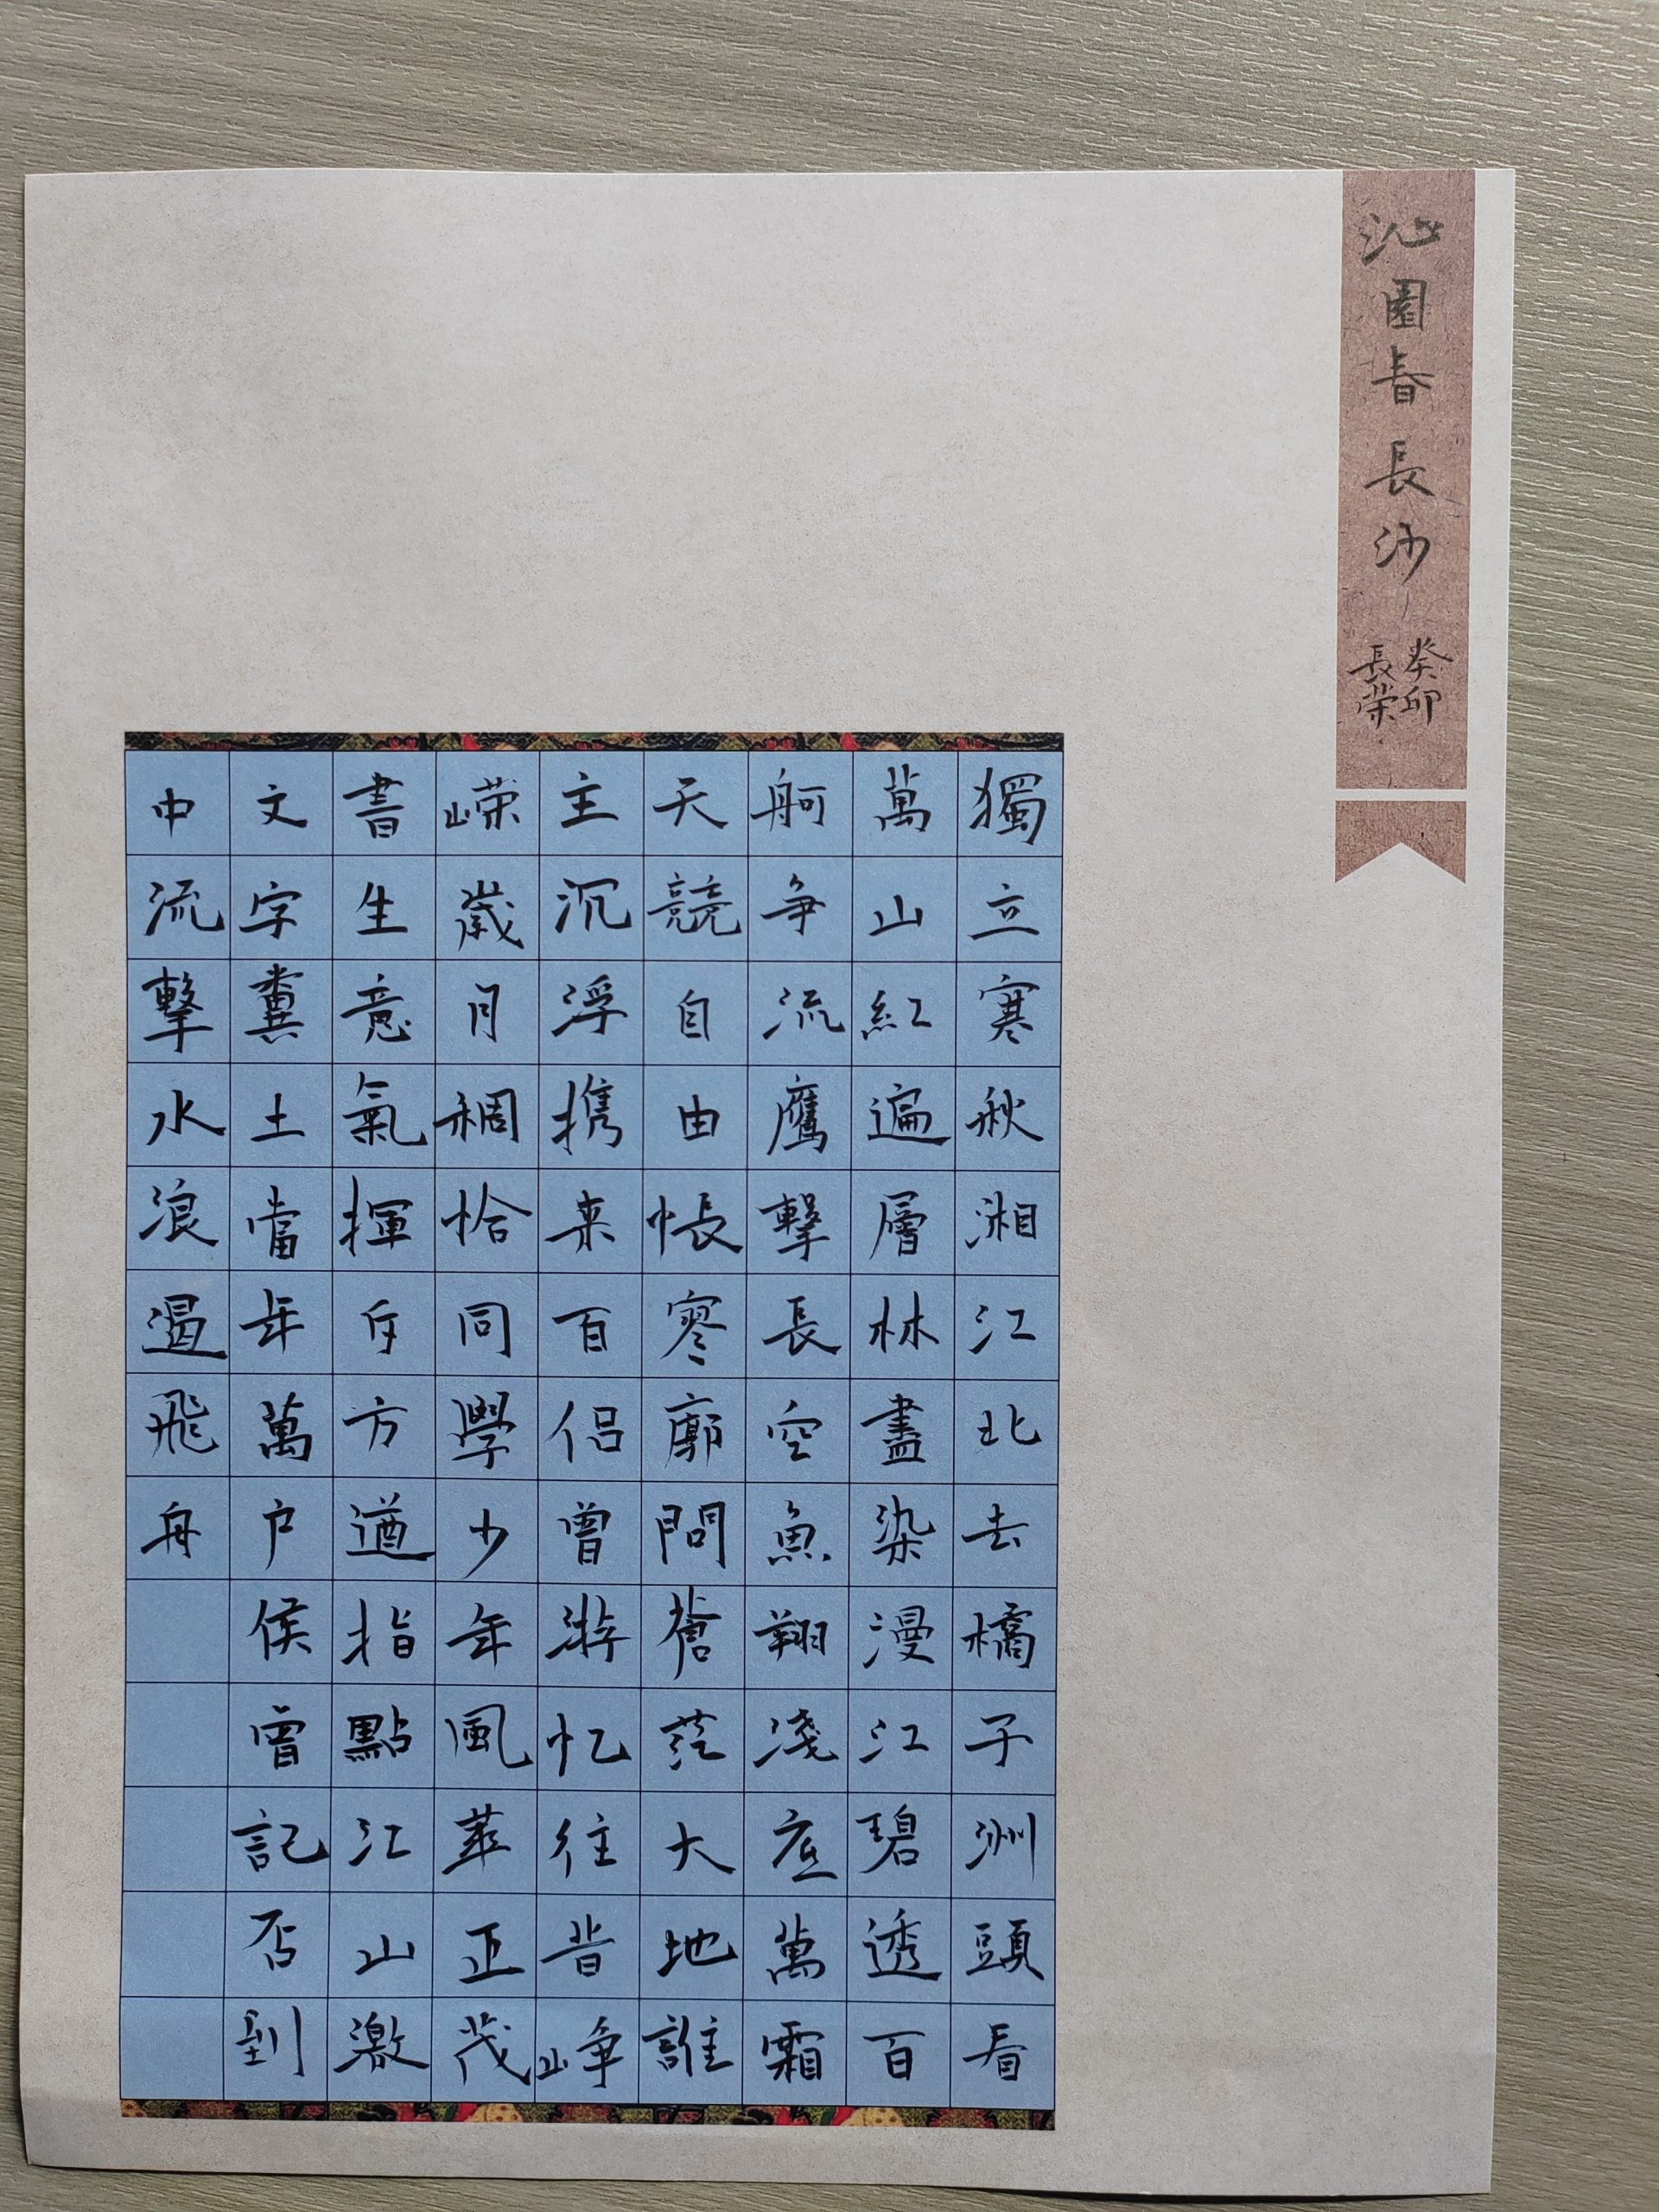 沁園春長沙
癸卯
長荣
獨立寒秋湘江北去橘子洲頭看
萬山紅遍層林盡染漫江碧透百
舸争流鷹擊長空魚翔淺底萬霜
天競自由悵寥廓問蒼茫大地誰
主沉浮携来百侣曾游忆往昔峥
嵘歲月稠恰同學少年風華正茂
書生意氣揮斥方遒指點江山激
文字糞土當年萬户侯曾記否到
中流擊水浪遏飛舟